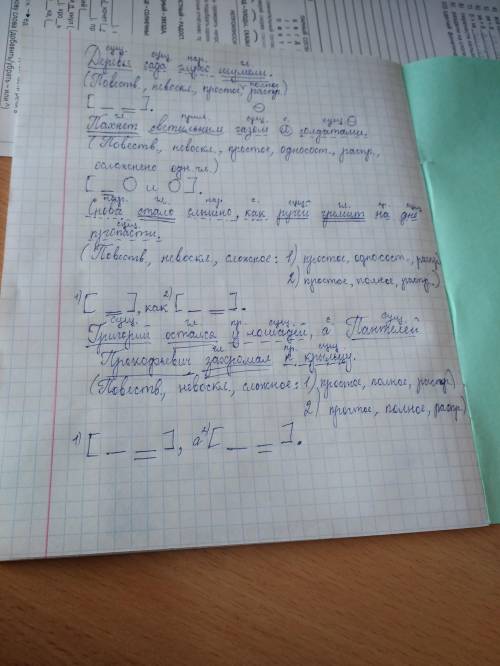 сущ. сущ. нар. гл.
Деревья сада глухо шумели.
(Повеств., невоскл., простое, полное, распр.)
[ _ = ].
гл. прил. сущ. с. сущ.
Пахнет светильным газом и солдатами.
(Повеств., невоскл., простое, односост., распр.,
осложнено одн. чл.)
[ _ О и О ].
нар. гл. нар. с. сущ. гл. пр. сущ.
Снова стало слышно, как ручей гремит на дне
сущ.
пропасти.
(Повеств., невоскл., сложное: 1) простое, односост., распр.
2) простое, полное, распр.)
1) [ = ], как 2) [ _ = ].
сущ. гл. пр. сущ. с. сущ.
Григорий остался у лошадей, а Пантелей
гл. пр. сущ.
Прокофьевич захромал к крыльцу.
(Повеств., невоскл., сложное: 1) простое, полное, распр.
2) простое, полное, распр.)
1) [ _ = ], а 2) [ _ = ].